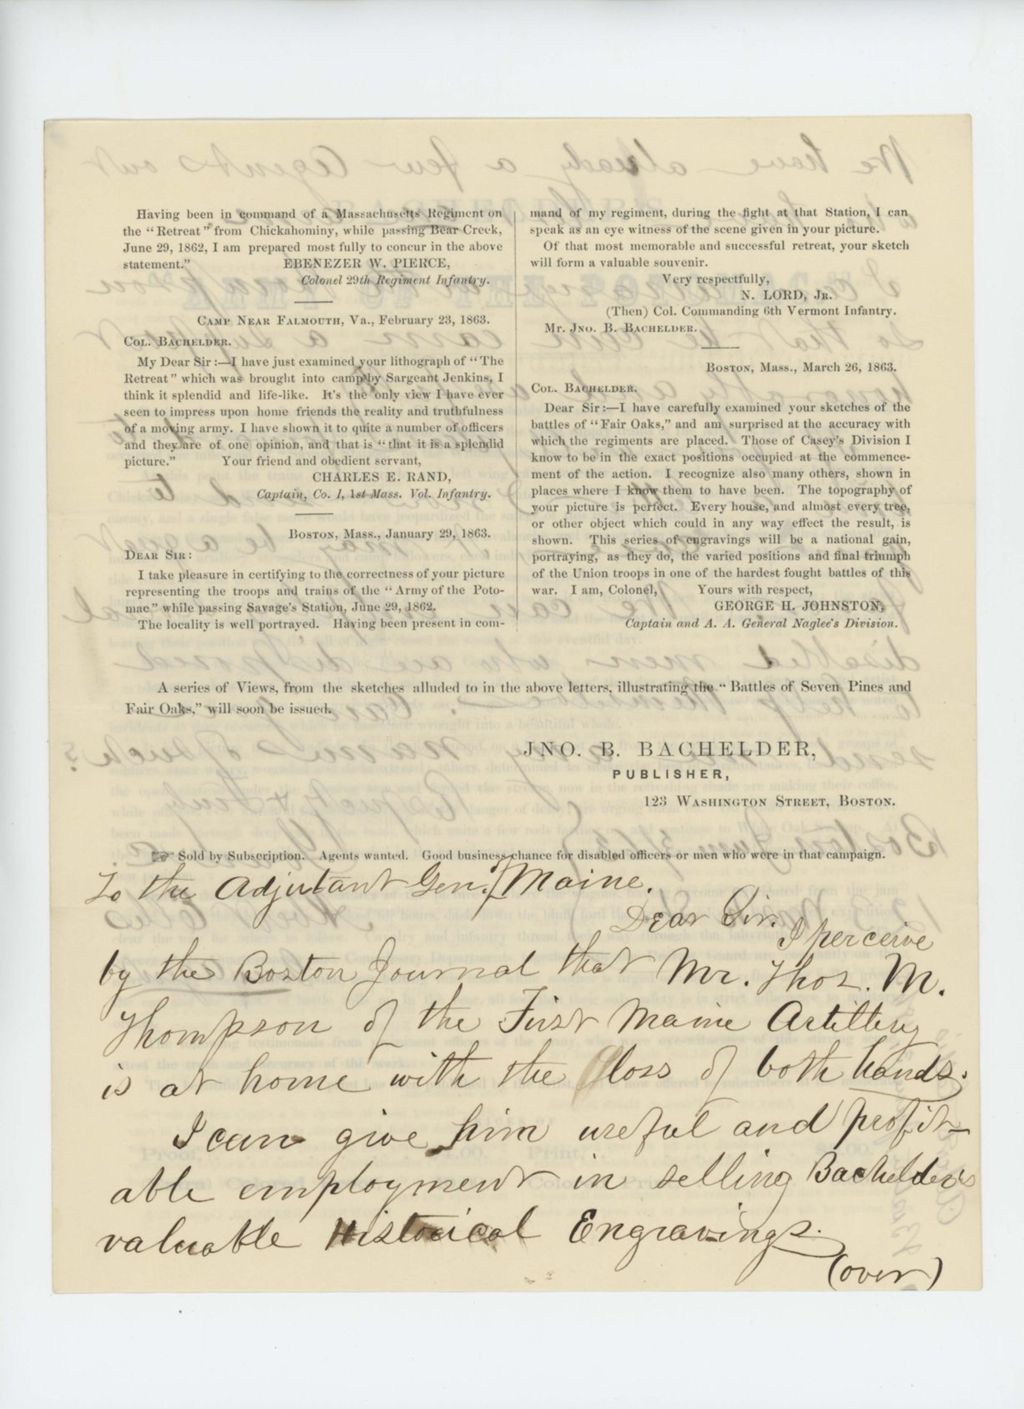 Having been in command of a Massachusetts Regiment on
the "Retreat" from Chickahominy, while passing Bear Creek,
June 29, 1862, I am prepared most fully to concur in the above
statement."
EBENEZER W. PIERCE,
Colonel 29th Regiment Infantry.
CAMP NEAR FALMOUTH, Va., February 23, 1863.
COL. BACHELDER.
My Dear Sir:—I have just examined your lithograph of "The
Retreat" which was brought into camp by Sargeant Jenkins, I
think it splendid and life-like. It's the only view I have ever
seen to impress upon home friends the reality and truthfulness
of a moving army. I have shown it to quite a number of officers
and they are of one opinion, and that is "that it is a splendid
picture." Your friend and obedient servant,
CHARLES E. RAND,
Captain, Co. I, 1st Mass. Vol. Infantry.
BOSTON, Mass., January 29, 1863.
DEAR SIR:
I take pleasure in certifying to the correctness of your picture
representing the troops and trains of the "Army of the Poto-
mac" while passing Savage's Station, June 29, 1862.
The locality is well portrayed. Having been present in com-
mand of my regiment, during the fight at that Station, I can
speak as an eye witness of the scene given in your picture.
Of that most memorable and successful retreat, your sketch
will form a valuable souvenir.
Very respectfully,
N. LORD, JR.
(Then) Col. Commanding 6th Vermont Infantry.
Mr. JNO. B. BACHELDER.
BOSTON, Mass., March 26, 1863.
COL. BACHELDER.
Dear Sir:—I have carefully examined your sketches of the
battles of "Fair Oaks," and am surprised at the accuracy with
which the regiments are placed. Those of Casey's Division I
know to be in the exact positions occupied at the commence-
ment of the action. I recognize also many others, shown in
places where I know them to have been. The topography of
your picture is perfect. Every house, and almost every tree,
or other object which could in any way effect the result, is
shown. This series of engravings will be a national gain,
portraying, as they do, the varied positions and final triumph
of the Union troops in one of the hardest fought battles of this
war. I am, Colonel, Yours with respect,
GEORGE H. JOHNSTON,
Captain and A. A. General Naglee's Division.
A series of Views, from the sketches alluded to in the above letters, illustrating the "Battles of Seven Pines and
Fair Oaks," will soon be issued.
JNO. B. BACHELDER,
PUBLISHER,
123 WASHINGTON STREET, BOSTON.
☞ Sold by Subscription. Agents wanted. Good business chance for disabled officers or men who were in that campaign.
To the Adjutant Gen. of Maine.
Dear Sir.
I perceive
by the Boston Journal that Mr. Thos. M.
Thompson of the First Maine Artillery
is at home with the loss of both hands.
I can give him useful and profit-
able employment in selling Bachelder's
valuable Historical Engravings.
(over)